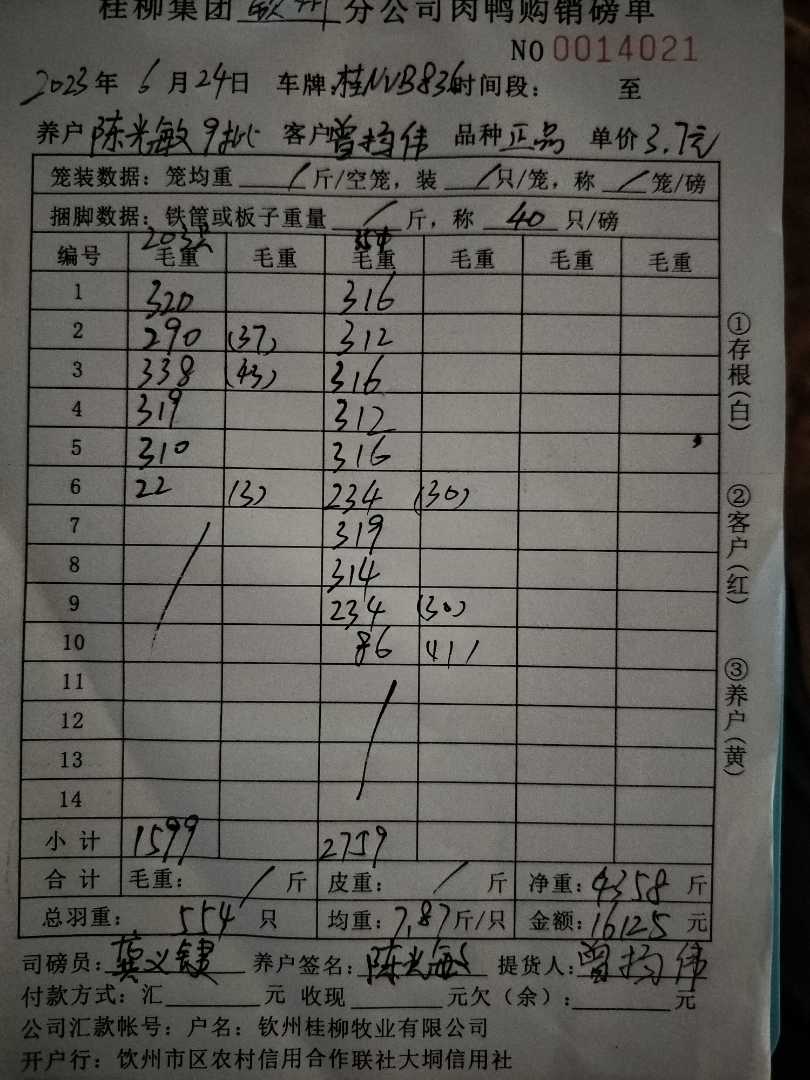 桂柳集团 钦州 分公司肉鸭购销磅单
NO 0014021
2023年 6月24日 车牌:桂NVB836时间段: 至
养户 陈光敏 9批 客户 曾扬伟 品种 正品 单价 3.7元
笼装数据: 笼均重 / 斤/空笼, 装 / 只/笼, 称 / 笼/磅
捆脚数据: 铁筐或板子重量 / 斤, 称 40 只/磅
编号 毛重 毛重 毛重 毛重 毛重 毛重
1 320 316
2 290 (37) 312
3 338 (43) 316
4 319 312
5 310 316
6 22 (3) 234 (30)
7 / 319
8 314
9 234 (30)
10 86
11 /
12
13
14
小计 1599 2759
合计 毛重: / 斤 皮重: / 斤 净重: 4358 斤
总羽重: 554 只 均重: 7.87斤/只 金额: 16125 元
司磅员: 养户签名: 陈光敏 提货人: 曾扬伟
付款方式: 汇 元 收现 元欠(余): 元
公司汇款帐号: 户名: 钦州桂柳牧业有限公司
开户行: 饮州市区农村信用合作联社大垌信用社
①存根(白)
②客户(红)
③养户(黄)